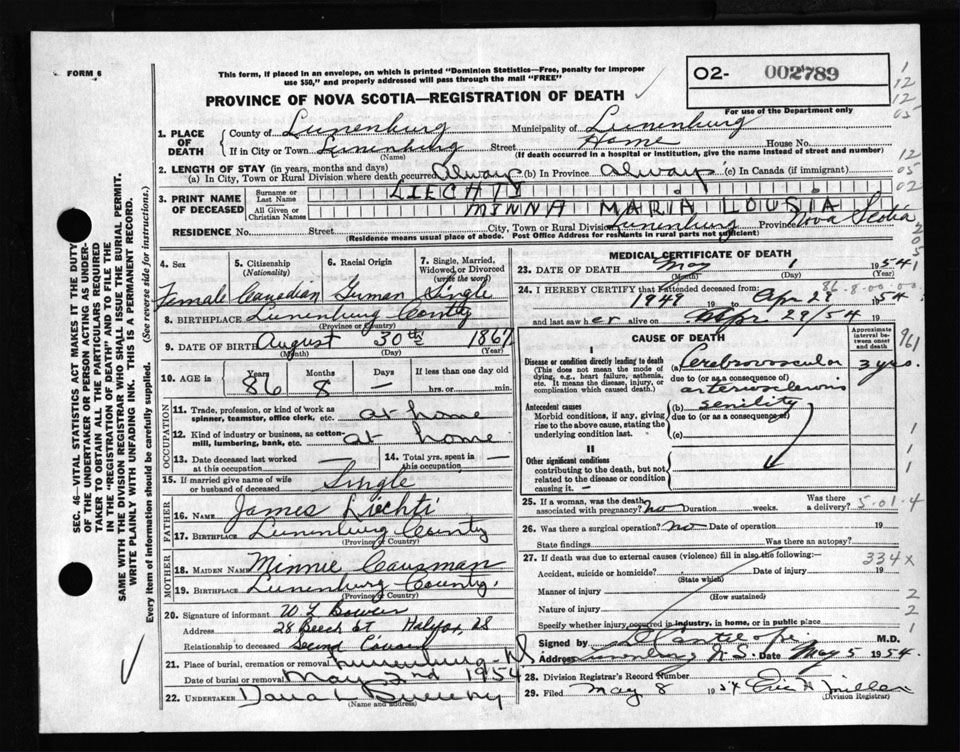 FORM 6
This form, if placed in an envelope, on which is printed "Dominion Statistics—Free, penalty for improper
use $50," and properly addressed will pass through the mail "FREE"
O2- 002789
PROVINCE OF NOVA SCOTIA—REGISTRATION OF DEATH
For use of the Department only
1. PLACE OF DEATH
County of Lunenburg Municipality of Lunenburg
If in City or Town Lunenburg Street Home House No.
(Name) (If death occurred in a hospital or institution, give the name instead of street and number)
2. LENGTH OF STAY (in years, months and days)
(a) In City, Town or Rural Division where death occurred Always (b) In Province always (c) In Canada (if immigrant)
3. PRINT NAME OF DECEASED
Surname or Last Name LIECHTI
All Given or Christian Names MINNA MARIA LOUSIA
RESIDENCE No. Street City, Town or Rural Division Lunenburg Province Nova Scotia
(Residence means usual place of abode. Post Office Address for residents in rural parts not sufficient)
4. Sex Female
5. Citizenship (Nationality) Canadian
6. Racial Origin German
7. Single, Married, Widowed or Divorced (write the word) Single
8. BIRTHPLACE Lunenburg County
(Province or Country)
9. DATE OF BIRTH August 30th 1867
(Month) (Day) (Year)
10. AGE in Years Months Days If less than one day old
86 8 — hrs. or min.
OCCUPATION
11. Trade, profession, or kind of work as spinner, teamster, office clerk, etc. at home
12. Kind of industry or business, as cotton-mill, lumbering, bank, etc. at home
13. Date deceased last worked at this occupation —
14. Total yrs. spent in this occupation —
15. If married give name of wife or husband of deceased Single
FATHER
16. Name James Liechti
17. Birthplace Lunenburg County
(Province or Country)
MOTHER
18. Maiden Name Minnie
19. Birthplace Lunenburg County
(Province or Country)
20. Signature of informant W L
Address 28 Beech St Halifax, NS
Relationship to deceased Second Cousin
21. Place of burial, cremation or removal Lunenburg
Date of burial or removal May 2nd 1954
22. UNDERTAKER
(Name and address)
MEDICAL CERTIFICATE OF DEATH
23. DATE OF DEATH May 1 1954
(Month) (Day) (Year)
86-8-00-00
24. I HEREBY CERTIFY that I attended deceased from:
1949 19 to Apr 29 1954
and last saw her alive on Apr 29/54 19
CAUSE OF DEATH
Approximate interval between onset and death
I
Disease or condition directly leading to death
(This does not mean the mode of dying, e.g., heart failure, asthenia, etc. It means the disease, injury, or complication which caused death.)
(a) Cerebrovascular 3 yrs.
due to (or as a consequence of)
arteriosclerosis
Antecedent causes
Morbid conditions, if any, giving rise to the above cause, stating the underlying condition last.
(b) senility
due to (or as a consequence of)
(c)
II
Other significant conditions
contributing to the death, but not related to the disease or condition causing it.
25. If a woman, was the death associated with pregnancy? no Duration weeks. Was there a delivery? 5-01-4
26. Was there a surgical operation? no Date of operation 19
State findings Was there an autopsy?
27. If death was due to external causes (violence) fill in also the following: 334x
Accident, suicide or homicide? Date of injury 19
(State which)
Manner of injury
(How sustained)
Nature of injury
Specify whether injury occurred in industry, in home, or in public place
Signed by M.D.
Address Lunenburg N.S. Date May 5 1954
28. Division Registrar's Record Number
29. Filed May 8 1954 Eric H Miller
(Division Registrar)
SEC. 46—VITAL STATISTICS ACT MAKES IT THE DUTY
OF THE UNDERTAKER OR PERSON ACTING AS UNDER-
TAKER TO OBTAIN ALL THE PARTICULARS REQUIRED
IN THE "REGISTRATION OF DEATH" AND TO FILE THE
SAME WITH THE DIVISION REGISTRAR WHO SHALL ISSUE THE BURIAL PERMIT.
WRITE PLAINLY WITH UNFADING INK. THIS IS A PERMANENT RECORD.
Every item of information should be carefully supplied. (See reverse side for instructions.)